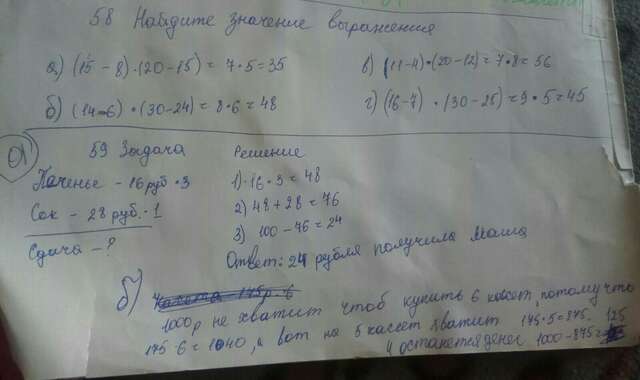 58 Найдите значение выражения
а) (15 - 8) · (20 - 15) = 7 · 5 = 35
в) (11 - 4) · (20 - 12) = 7 · 8 = 56
б) (14 - 6) · (30 - 24) = 8 · 6 = 48
г) (16 - 7) · (30 - 25) = 9 · 5 = 45
а) 59 Задача
Решение
Печенье - 16 руб · 3
1) 16 · 3 = 48
Сок - 28 руб. · 1
2) 48 + 28 = 76
Сдача - ?
3) 100 - 76 = 24
Ответ: 24 рубля получила Маша
б)
1000р не хватит чтоб купить 6 кассет, потому что
175 · 6 = 1040, а вот на 5 кассет хватит 175 · 5 = 875. 125
и останется денег 1000 - 875 =